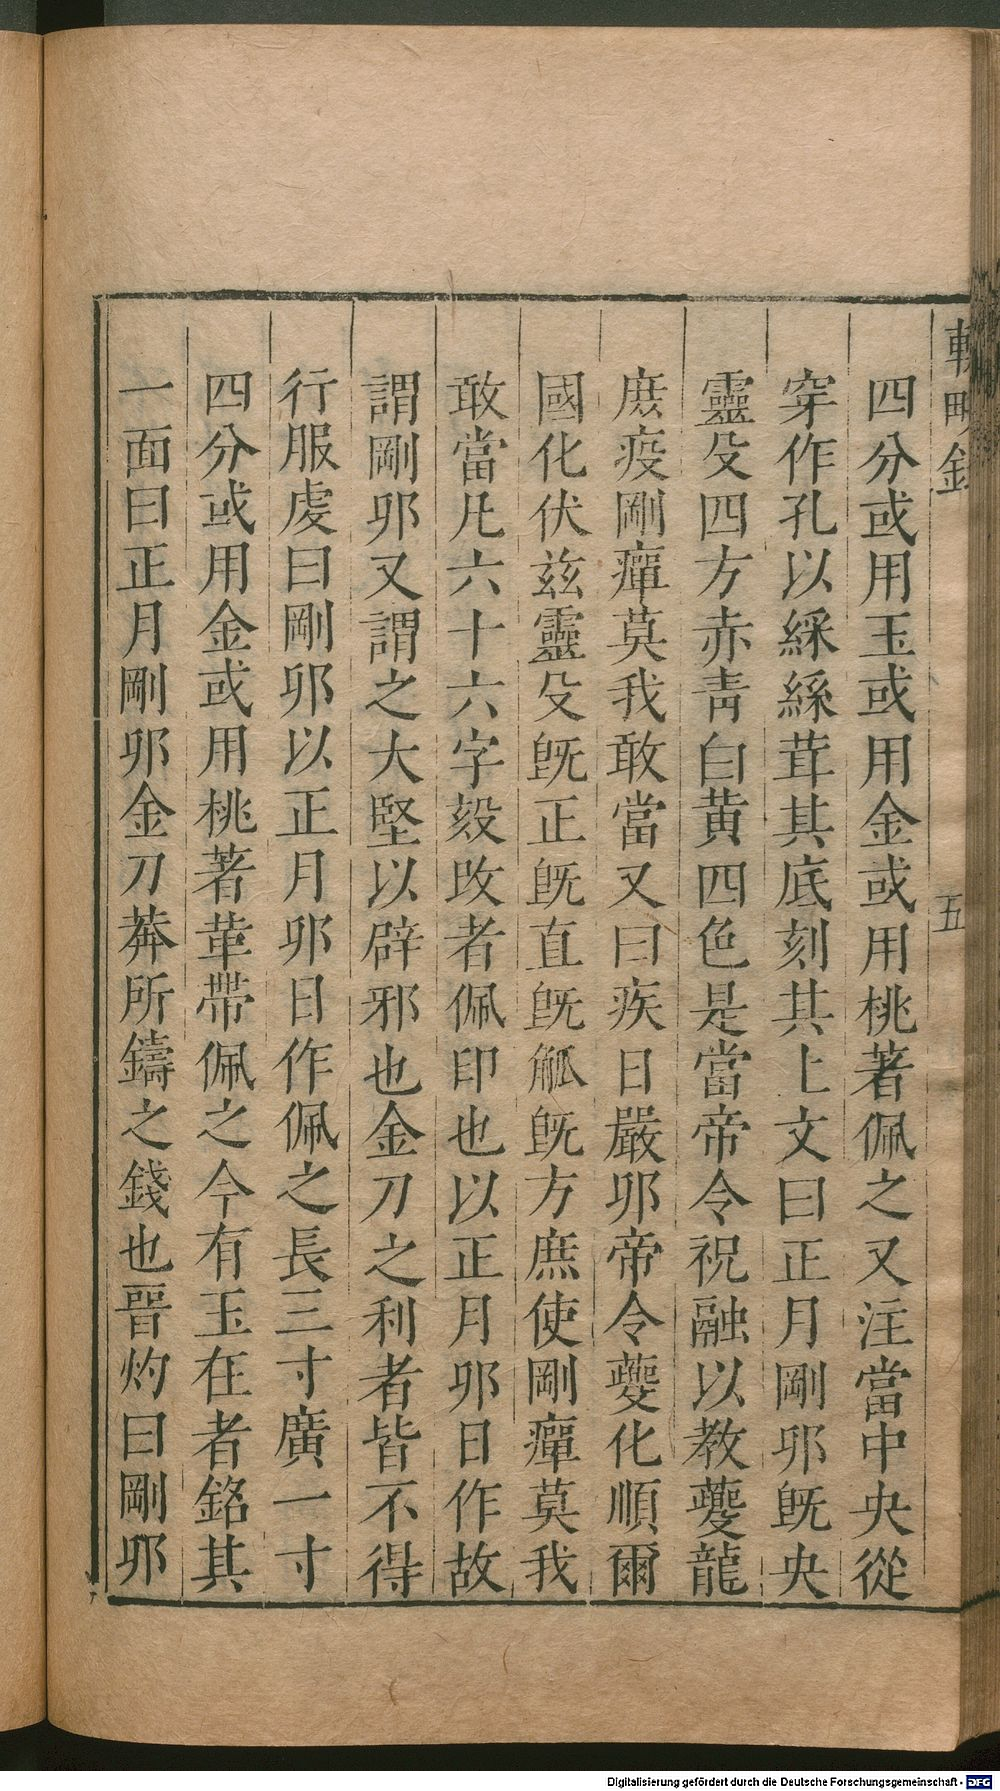 輟畊錄
五
四分或用玉或用金或用桃著佩之又注當中央從
穿作孔以綵絲茸其底刻其上文曰正月剛卯旣央
靈殳四方赤靑白黃四色是當帝令祝融以教夔龍
庶疫剛癉莫我敢當又曰疾日嚴卯帝令夔化順爾
國化伏玆靈殳旣正旣直旣觚旣方庶使剛癉莫我
敢當凡六十六字㱾攺者佩印也以正月卯日作故
謂剛卯又謂之大堅以辟邪也金刀之利者皆不得
行服虔曰剛卯以正月卯日作佩之長三寸廣一寸
四分或用金或用桃著革帶佩之今有玉在者銘其
一面曰正月剛卯金刀莽所鑄之錢也晉灼曰剛卯
Digitalisierung gefördert durch die Deutsche Forschungsgemeinschaft - DFG